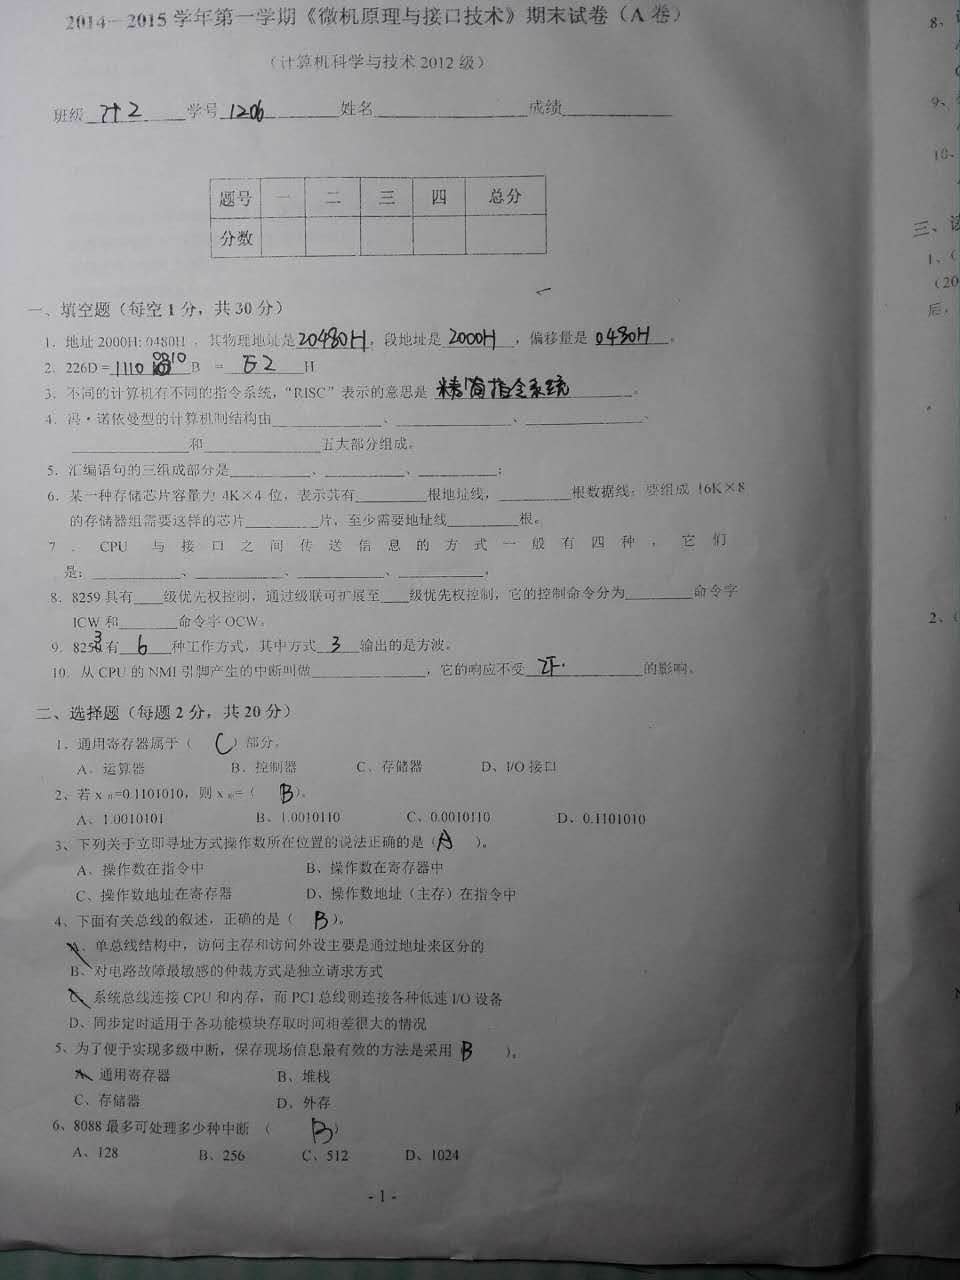 2014—2015 学年第一学期《微机原理与接口技术》期末试卷（A 卷）
（计算机科学与技术 2012 级）
班级 计2 学号 1206 姓名 成绩
题号 一 二 三 四 总分
分数
一、填空题（每空 1 分，共 30 分）
1. 地址 2000H: 0480H ，其物理地址是 20480H，段地址是 2000H ，偏移量是 0480H 。
2. 226D = 1110 0010 B = E2 H
3. 不同的计算机有不同的指令系统，“RISC”表示的意思是 精简指令系统 。
4. 冯·诺依曼型的计算机制结构由 、 、 、
和 五大部分组成。
5. 汇编语句的三组成部分是 、 、 ；
6. 某一种存储芯片容量为 4K×4 位，表示其有 根地址线， 根数据线；要组成 16K×8
的存储器组需要这样的芯片 片，至少需要地址线 根。
7 . CPU 与接口之间传送信息的方式一般有四种，它们
是： 、 、 、 。
8. 8259 具有 级优先权控制，通过级联可扩展至 级优先权控制，它的控制命令分为 命令字
ICW 和 命令字 OCW。
9. 8253 有 6 种工作方式，其中方式 3 输出的是方波。
10. 从 CPU 的 NMI 引脚产生的中断叫做 ，它的响应不受 IF. 的影响。
二、选择题（每题 2 分，共 20 分）
1、通用寄存器属于（ C ）部分。
A、运算器 B、控制器 C、存储器 D、I/O 接口
2、若 x =0.1101010，则 x =（ B ）。
A、1.0010101 B、1.0010110 C、0.0010110 D、0.1101010
3、下列关于立即寻址方式操作数所在位置的说法正确的是（ A ）。
A、操作数在指令中 B、操作数在寄存器中
C、操作数地址在寄存器 D、操作数地址（主存）在指令中
4、下面有关总线的叙述，正确的是（ B ）。
A、单总线结构中，访问主存和访问外设主要是通过地址来区分的
B、对电路故障最敏感的仲裁方式是独立请求方式
C、系统总线连接 CPU 和内存，而 PCI 总线则连接各种低速 I/O 设备
D、同步定时适用于各功能模块存取时间相差很大的情况
5、为了便于实现多级中断，保存现场信息最有效的方法是采用 B ）。
A、通用寄存器 B、堆栈
C、存储器 D、外存
6、8088 最多可处理多少种中断 （ B ）
A、128 B、256 C、512 D、1024
- 1 -
8、
9、
10、
三、
1、（
（20
后，
2、（